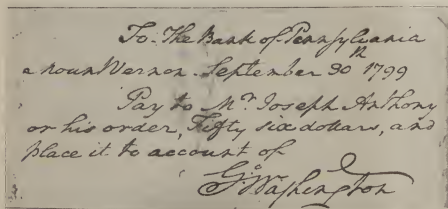 To The Bank of Pennsylvania
Mount Vernon September 30th 1799
Pay to Mr Joseph Anthony
or his order, Fifty six dollars, and
place it to account of
Go Washington